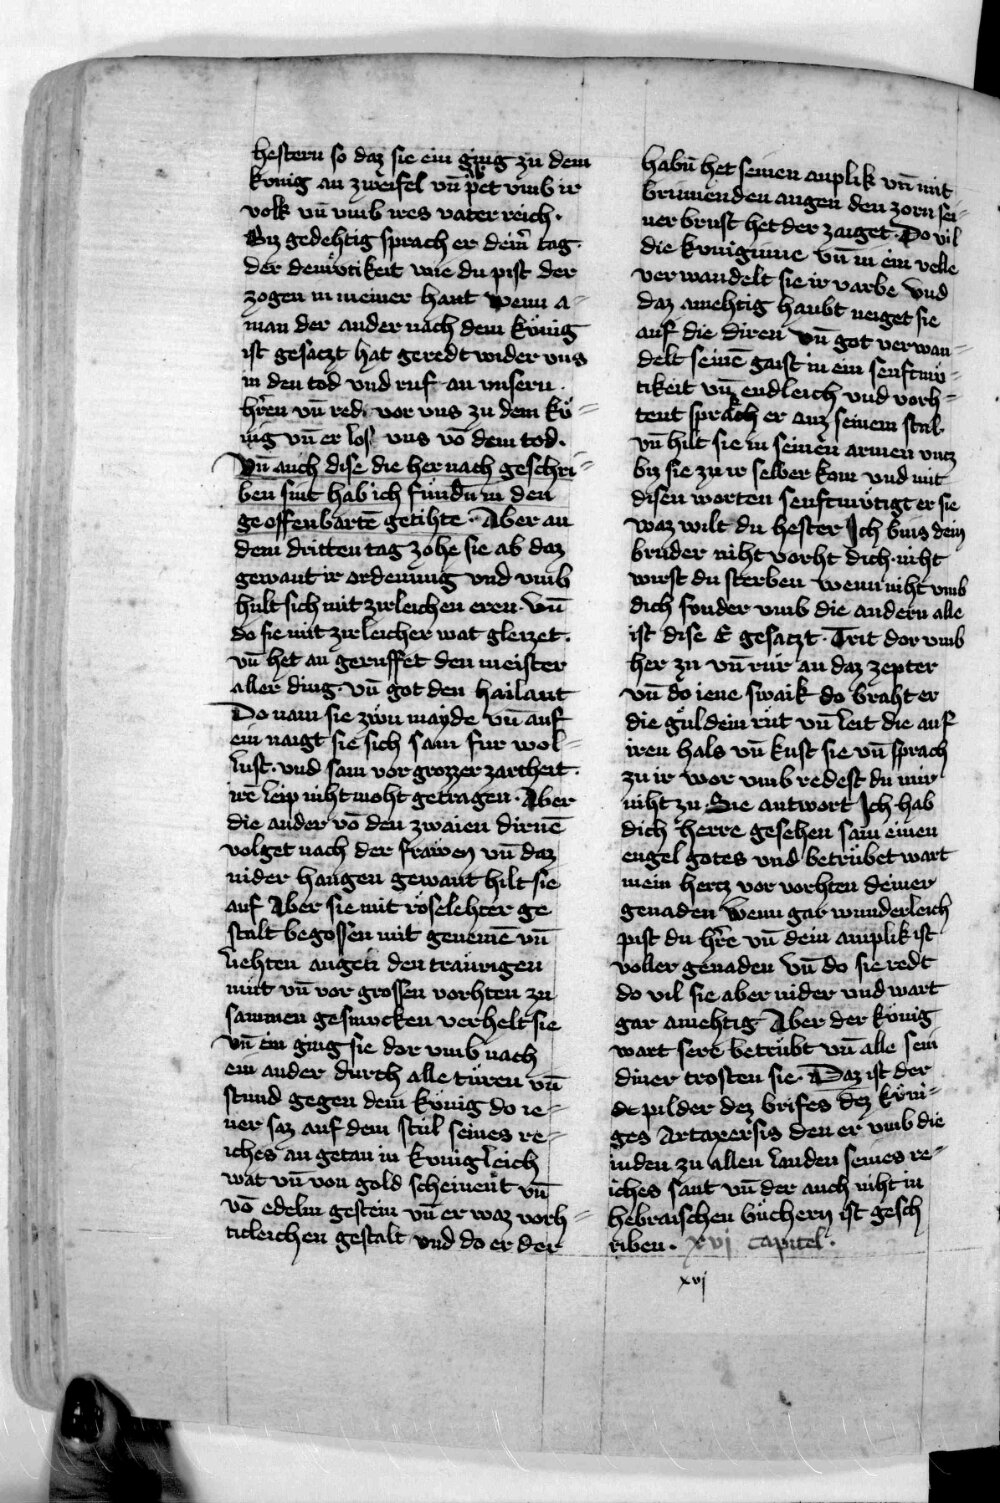 hestern so daz sie ein ging zu dem
kvnig an zweifel vn̄ pet vmb ir
volk vn̄ vmb ires vater reich ·
Biz gedehtig sprach er dein̄ tag ·
der demvͤtikeit wie du pist der
zogen in meiner hant wenn a=
man der ander nach dem kvͤnig
ist gesaczt hat geredt wider vns
in den tod vnd ruf an vnsern ·
hr̄en vn̄ red · vor vns zu dem kvͤ=
nig vn̄ er los vns vō dem tod ·
Vn̄ auch dise die her nach geschri=
ben sint hab ich fundn̄ in den
geoffenbartē getihte · Aber an
dem dritten tag zohe sie ab daz
gewant ir ordenung vnd vmb
hult sich mit zirleichen eren · vn̄
do sie mit zirleicher wat gleizet ·
vn̄ het an geruffet den meister
aller ding · vn̄ got den hailant
Do nam sie zwu mayde vn̄ auf
ein naigt sie sich sam fur wol=
lust · vnd sam vor grozzer zartheit ·
irē leip niht moht getragen · Aber
die ander vō den zwaien dirnē
volget nach der frawen vn̄ daz
nider hangen gewant hilt sie
auf Aber sie mit röselehter ge
stalt begossen mit genemē vn̄
liehten augen den traurigen
mut vn̄ vor grossen vorhten zu
sammen gesmvcken verhelt sie
vn̄ ein ging sie dor vmb nach
ein ander durch alle türen vn̄
stund gegen dem kvͤnig do ie=
ner saz auf dem stul seines re=
iches an getan in kvnigleich
wat vn̄ von gold scheinent vn̄
vō edelm gestein vn̄ er waz vorh=
ticleichen gestalt vnd do er der
habn̄ het seinen anplik vn̄ mit
brinnenden augen den zorn sei=
ner brust het der zaiget · Do vil
die kvniginne vn̄ in ein velle
verwandelt sie ir varbe vnd
daz amehtig haubt neiget sie
auf die diren vn̄ got verwan=
delt seinē gaist in ein senftmvͤ=
tikeit vn̄ endleich vnd vorh=
tent sprach er auz seinem stul
vn̄ hilt sie in seinen armen vncz
biz sie zu ir selber kom vnd mit
disen worten senftmvͤtigt er sie
waz wilt du hester Ich bins dein
bruder niht vorht dich · niht
wirst du sterben wenn niht vmb
dich sonder vmb die andern alle
ist dise E gesaczt · Trit dor vmb
her zu vn̄ rur an daz zepter
vn̄ do iene swaik do braht er
die guldein rut vn̄ leit die auf
iren hals vn̄ kust sie vn̄ sprach
zu ir wor vmb redest du mir
niht zu · Sie antwort Ich hab
dich herre gesehen sam einen
engel gotes vnd betrübet wart
mein hercz vor vorhten deiner
genaden wenn gar wunderleich
pist du hr̄e vn̄ dein amplik ist
voller genaden vn̄ do sie redt
do vil sie aber nider vnd wart
gar amehtig Aber der kvͤnig
wart sere betrübt vn̄ alle sein
diner trosten sie · Daz ist der
de pilder dez brifes dez kvͤni=
ges Artaxersis den er vmb die
iuden zu allen landen seines re=
iches sant vn̄ der auch niht in
hebraischen büchern ist gesch
riben · xvi capitel ·
xvj